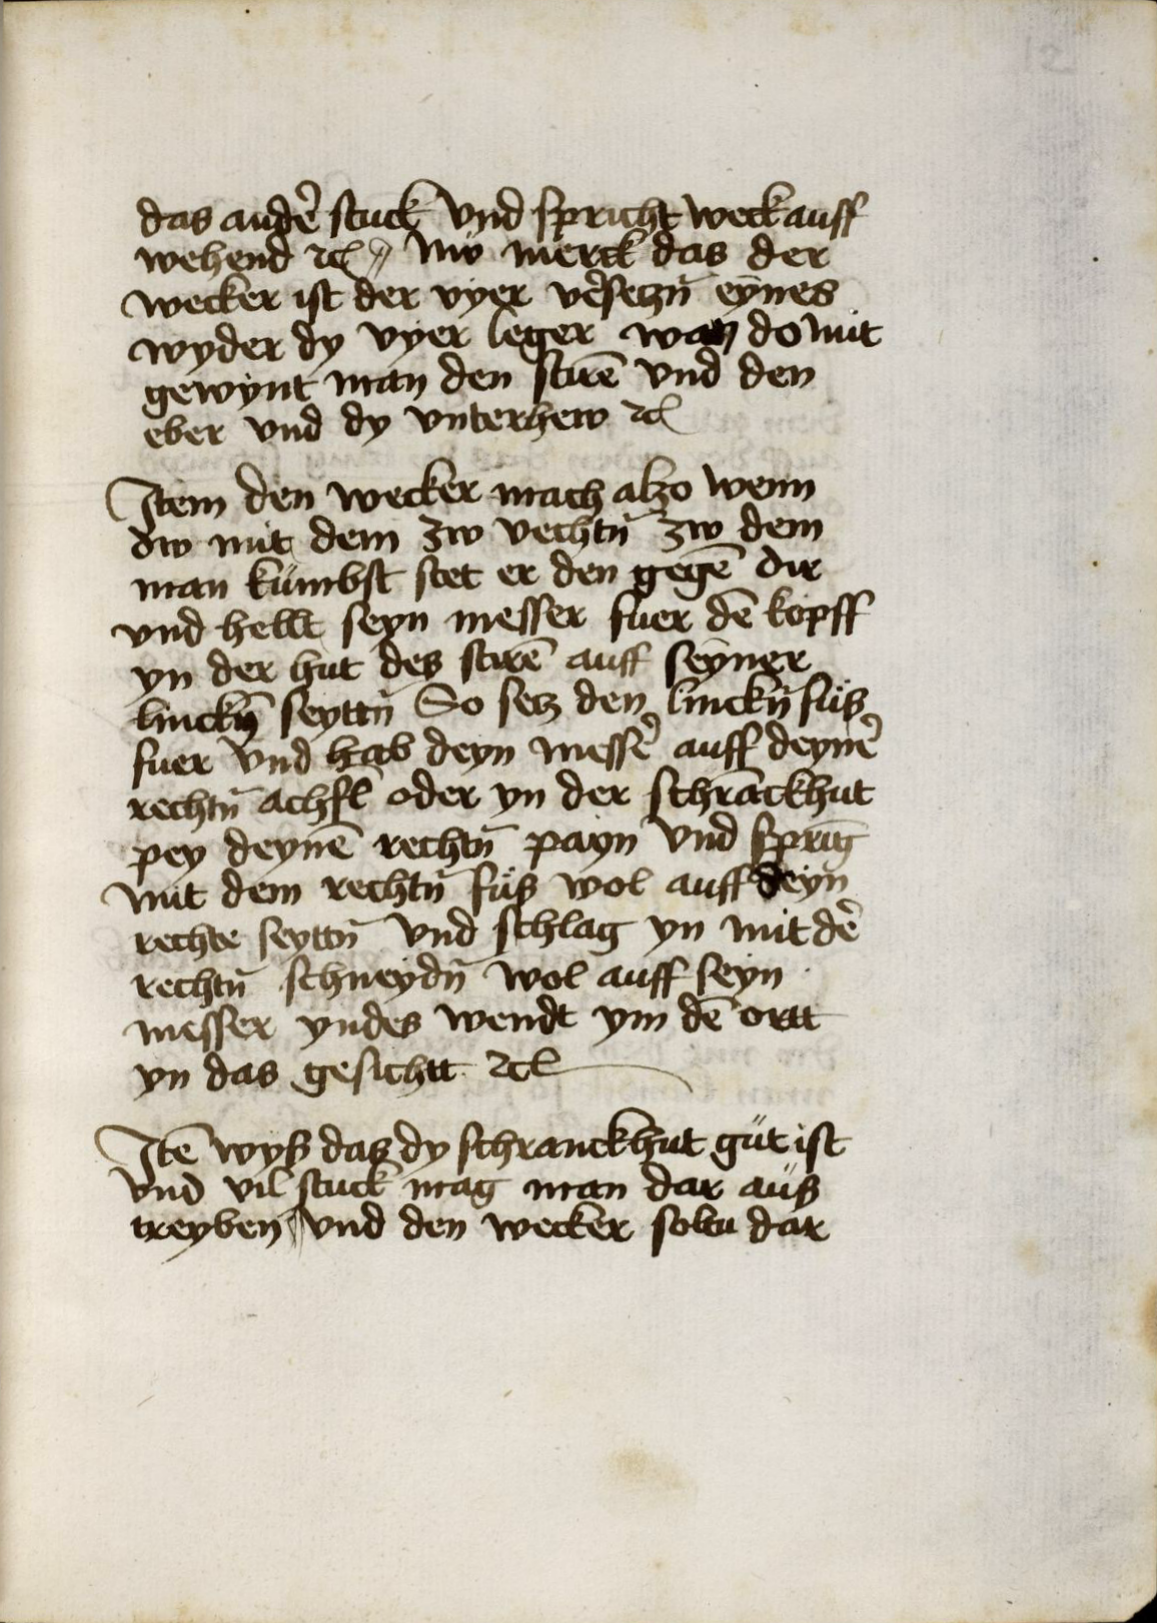 12
das andẽ stuck vnd spricht weck auff
wehend ⁊c̃ // Nw merck das der
wecker ist der vyer vẽsetzñ eynes
wyder dy vyer leger wan do mit
gewynt man den stirẽ vnd den
eber vnd dy vnterhew ⁊c̃
Item den wecker mach alzo wenn
dw mit dem zw vechtñ zw dem
man kümbst stet er den gegẽ dir
vnd heltt seyn messer fuer dẽ kopff
yn der hut des stirẽ auff seyner
linckñ seyttñ So setz den linckñ füß
fuer vnd hab deyn messẽ auff deynẽ
rechtñ achsl oder yn der schrãckhut
pey deynẽ rechtñ payn vnd sprĩg
mit dem rechtñ füß wol auff deyn
rechte seyttñ vnd schlag yn mit dẽ
rechtñ schneydñ wol auff seyn
messer yndes wendt ym dẽ ortt
yn das gesichtt ⁊c̃
Itẽ wyß das dy schranckhut güt ist
vnd vil stuck mag man dar auß
treyben // vnd den wecker soltu dar